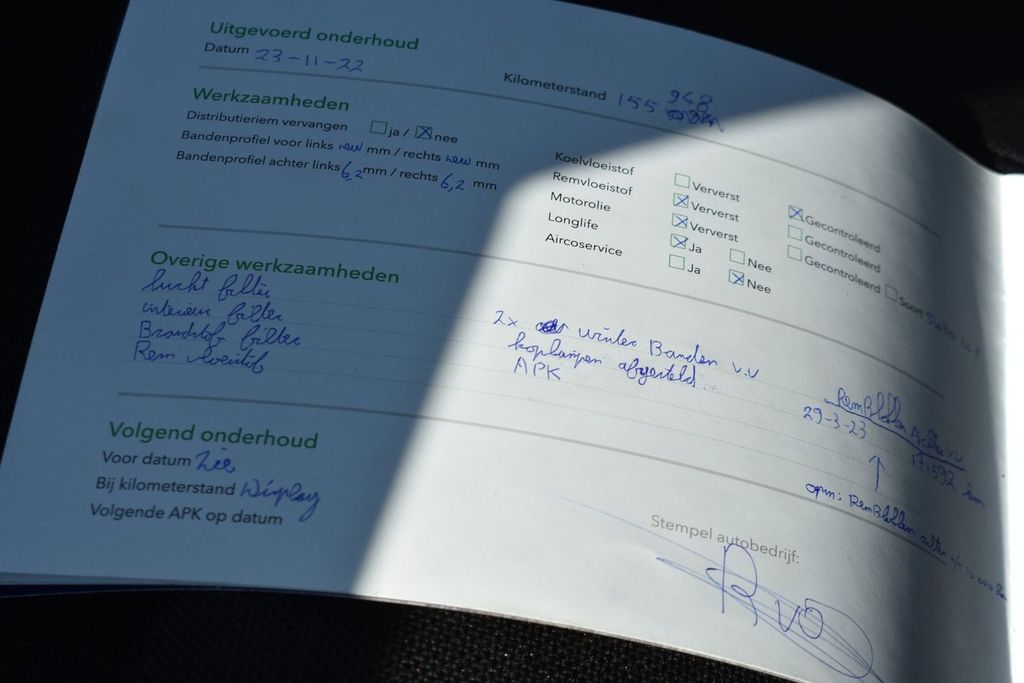 Uitgevoerd onderhoud
Datum 23-11-22
Kilometerstand 155 948
Werkzaamheden
Distributieriem vervangen ja / nee
Bandenprofiel voor links new mm / rechts new mm
Bandenprofiel achter links 6,2 mm / rechts 6,2 mm
Koelvloeistof Ververst Gecontroleerd
Remvloeistof Ververst Gecontroleerd
Motorolie Ververst Gecontroleerd Soort
Longlife Ja Nee
Aircoservice Ja Nee
Overige werkzaamheden
lucht filter
interieur filter
Brandstof filter
Rem vloeistof
2x winter Banden v.v
koplampen afgesteld
APK
RemBlokken Achter v.v
29-3-23 171592 km
opm: RemBlokken achter +/- 10 000 km
Volgend onderhoud
Voor datum Zie
Bij kilometerstand Display
Volgende APK op datum
Stempel autobedrijf: